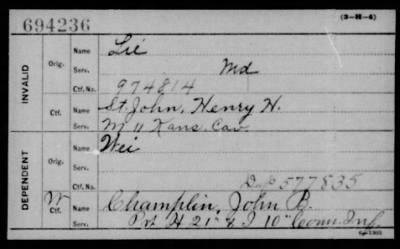 694236
(3-H-4)
INVALID
Orig.
Name Lie
Serv. Md
Ctf. No. 974814
Ctf.
Name St. John, Henry H.
Serv. M 11 Kans. Cav.
DEPENDENT
Orig.
Name Wei
Serv.
Ctf. No. 577835
W Ctf.
Name Champlin, John B.
Serv. Pvt H 21" & I 10" Conn Inf
6-1303